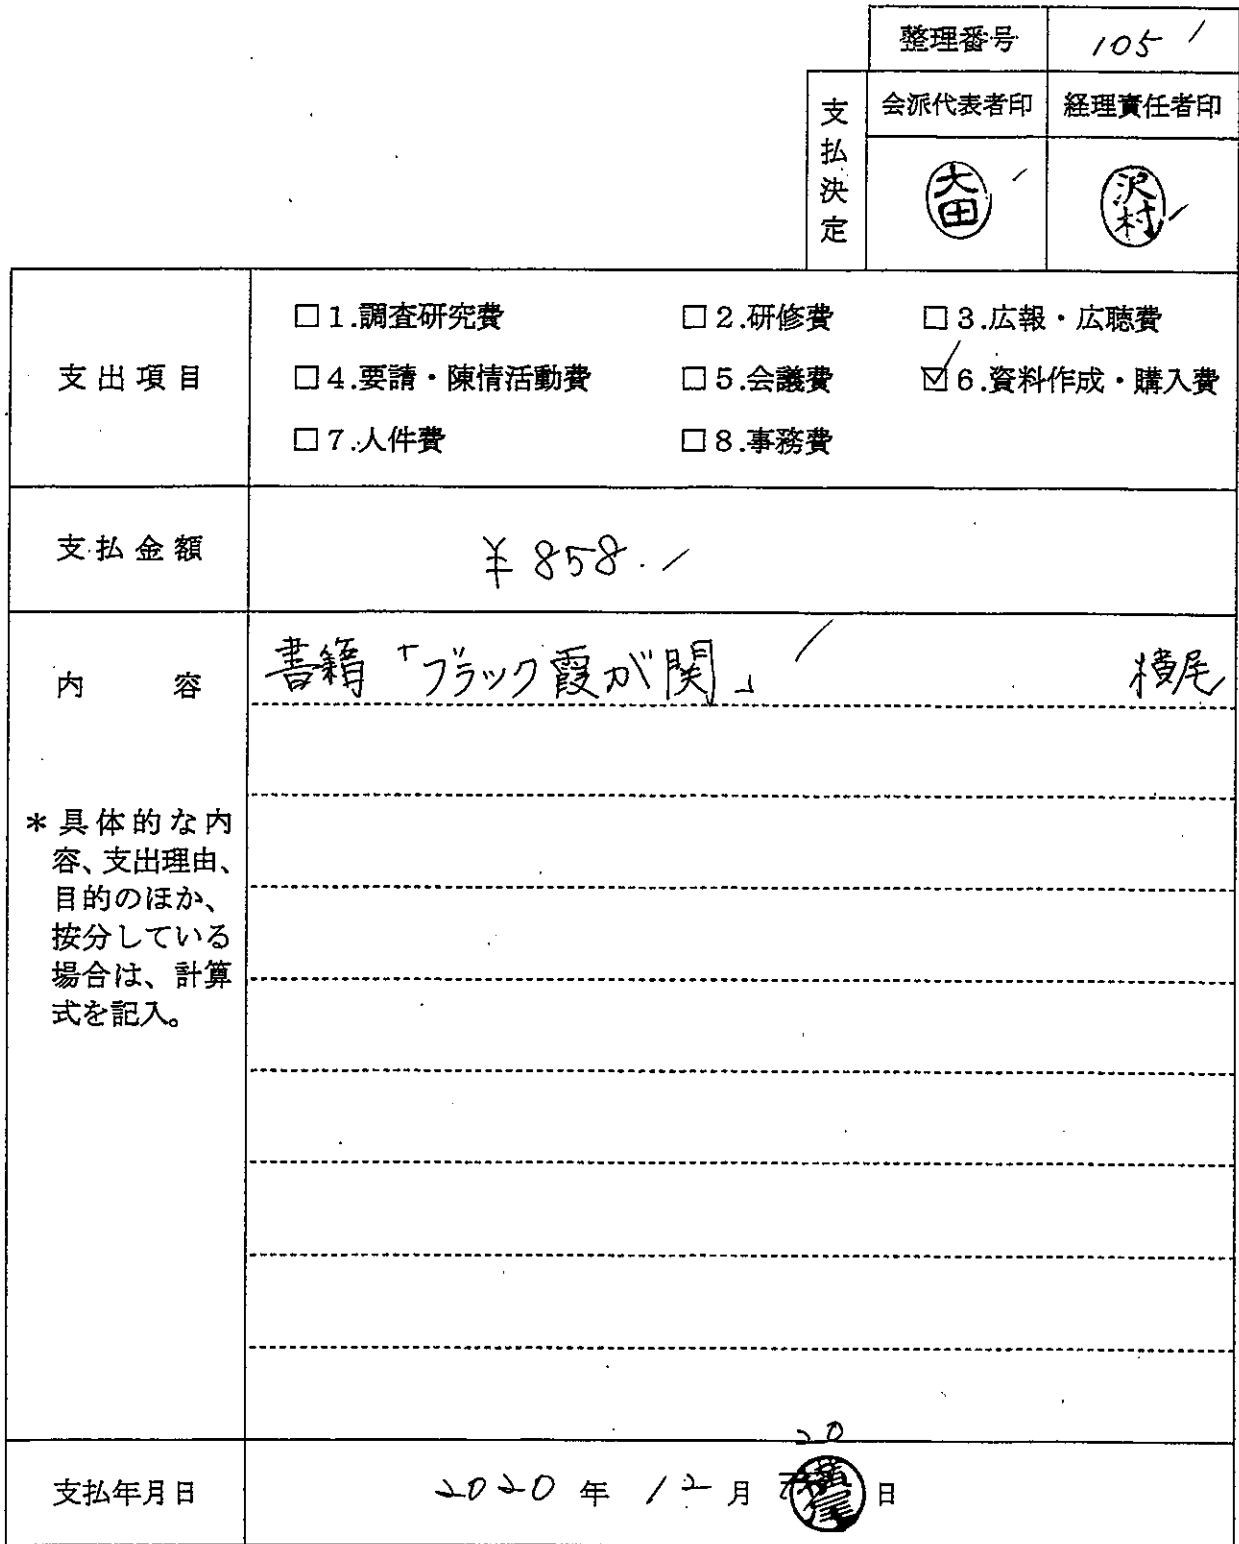 整理番号 105
支払決定 会派代表者印 経理責任者印
大田 沢村
支出項目
□1.調査研究費 □2.研修費 □3.広報・広聴費
□4.要請・陳情活動費 □5.会議費 ☑6.資料作成・購入費
□7.人件費 □8.事務費
支払金額 ¥858.
内容 書籍「ブラック霞が関」 横尾
*具体的な内
容、支出理由、
目的のほか、
按分している
場合は、計算
式を記入。
20
支払年月日 2020年12月 横尾 日